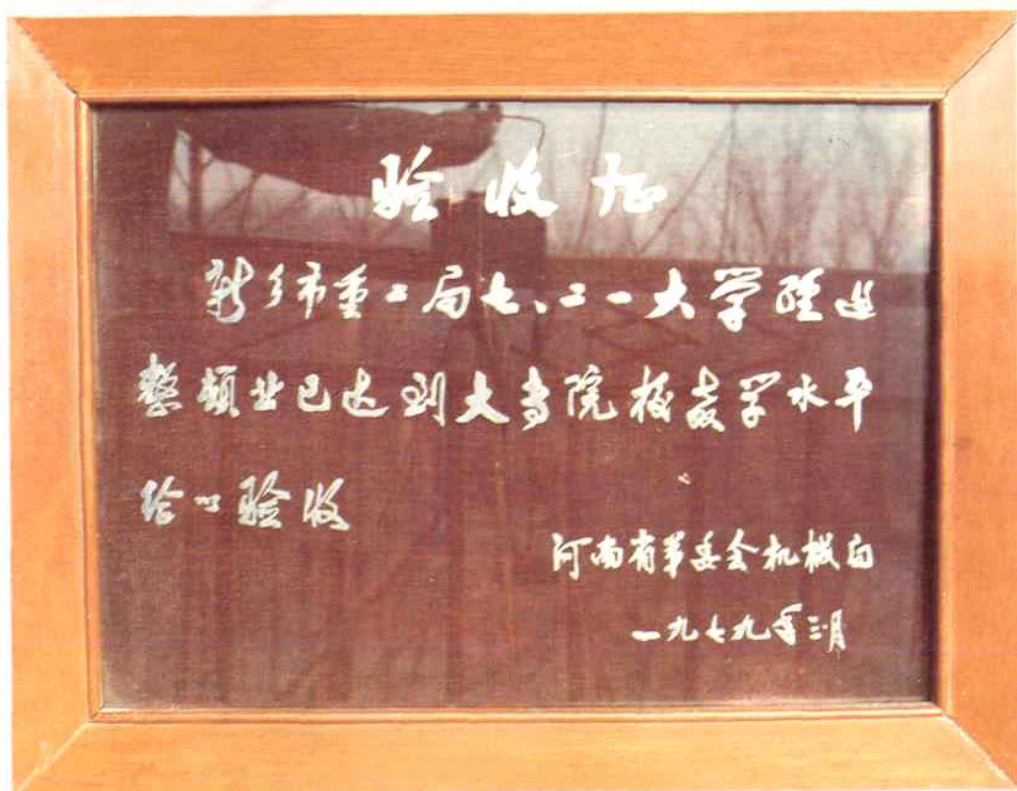 验收证
新乡市重工局七、二一大学经过
整顿业已达到大专院校教学水平
给以验收
河南省革委会机械局
一九七九年三月